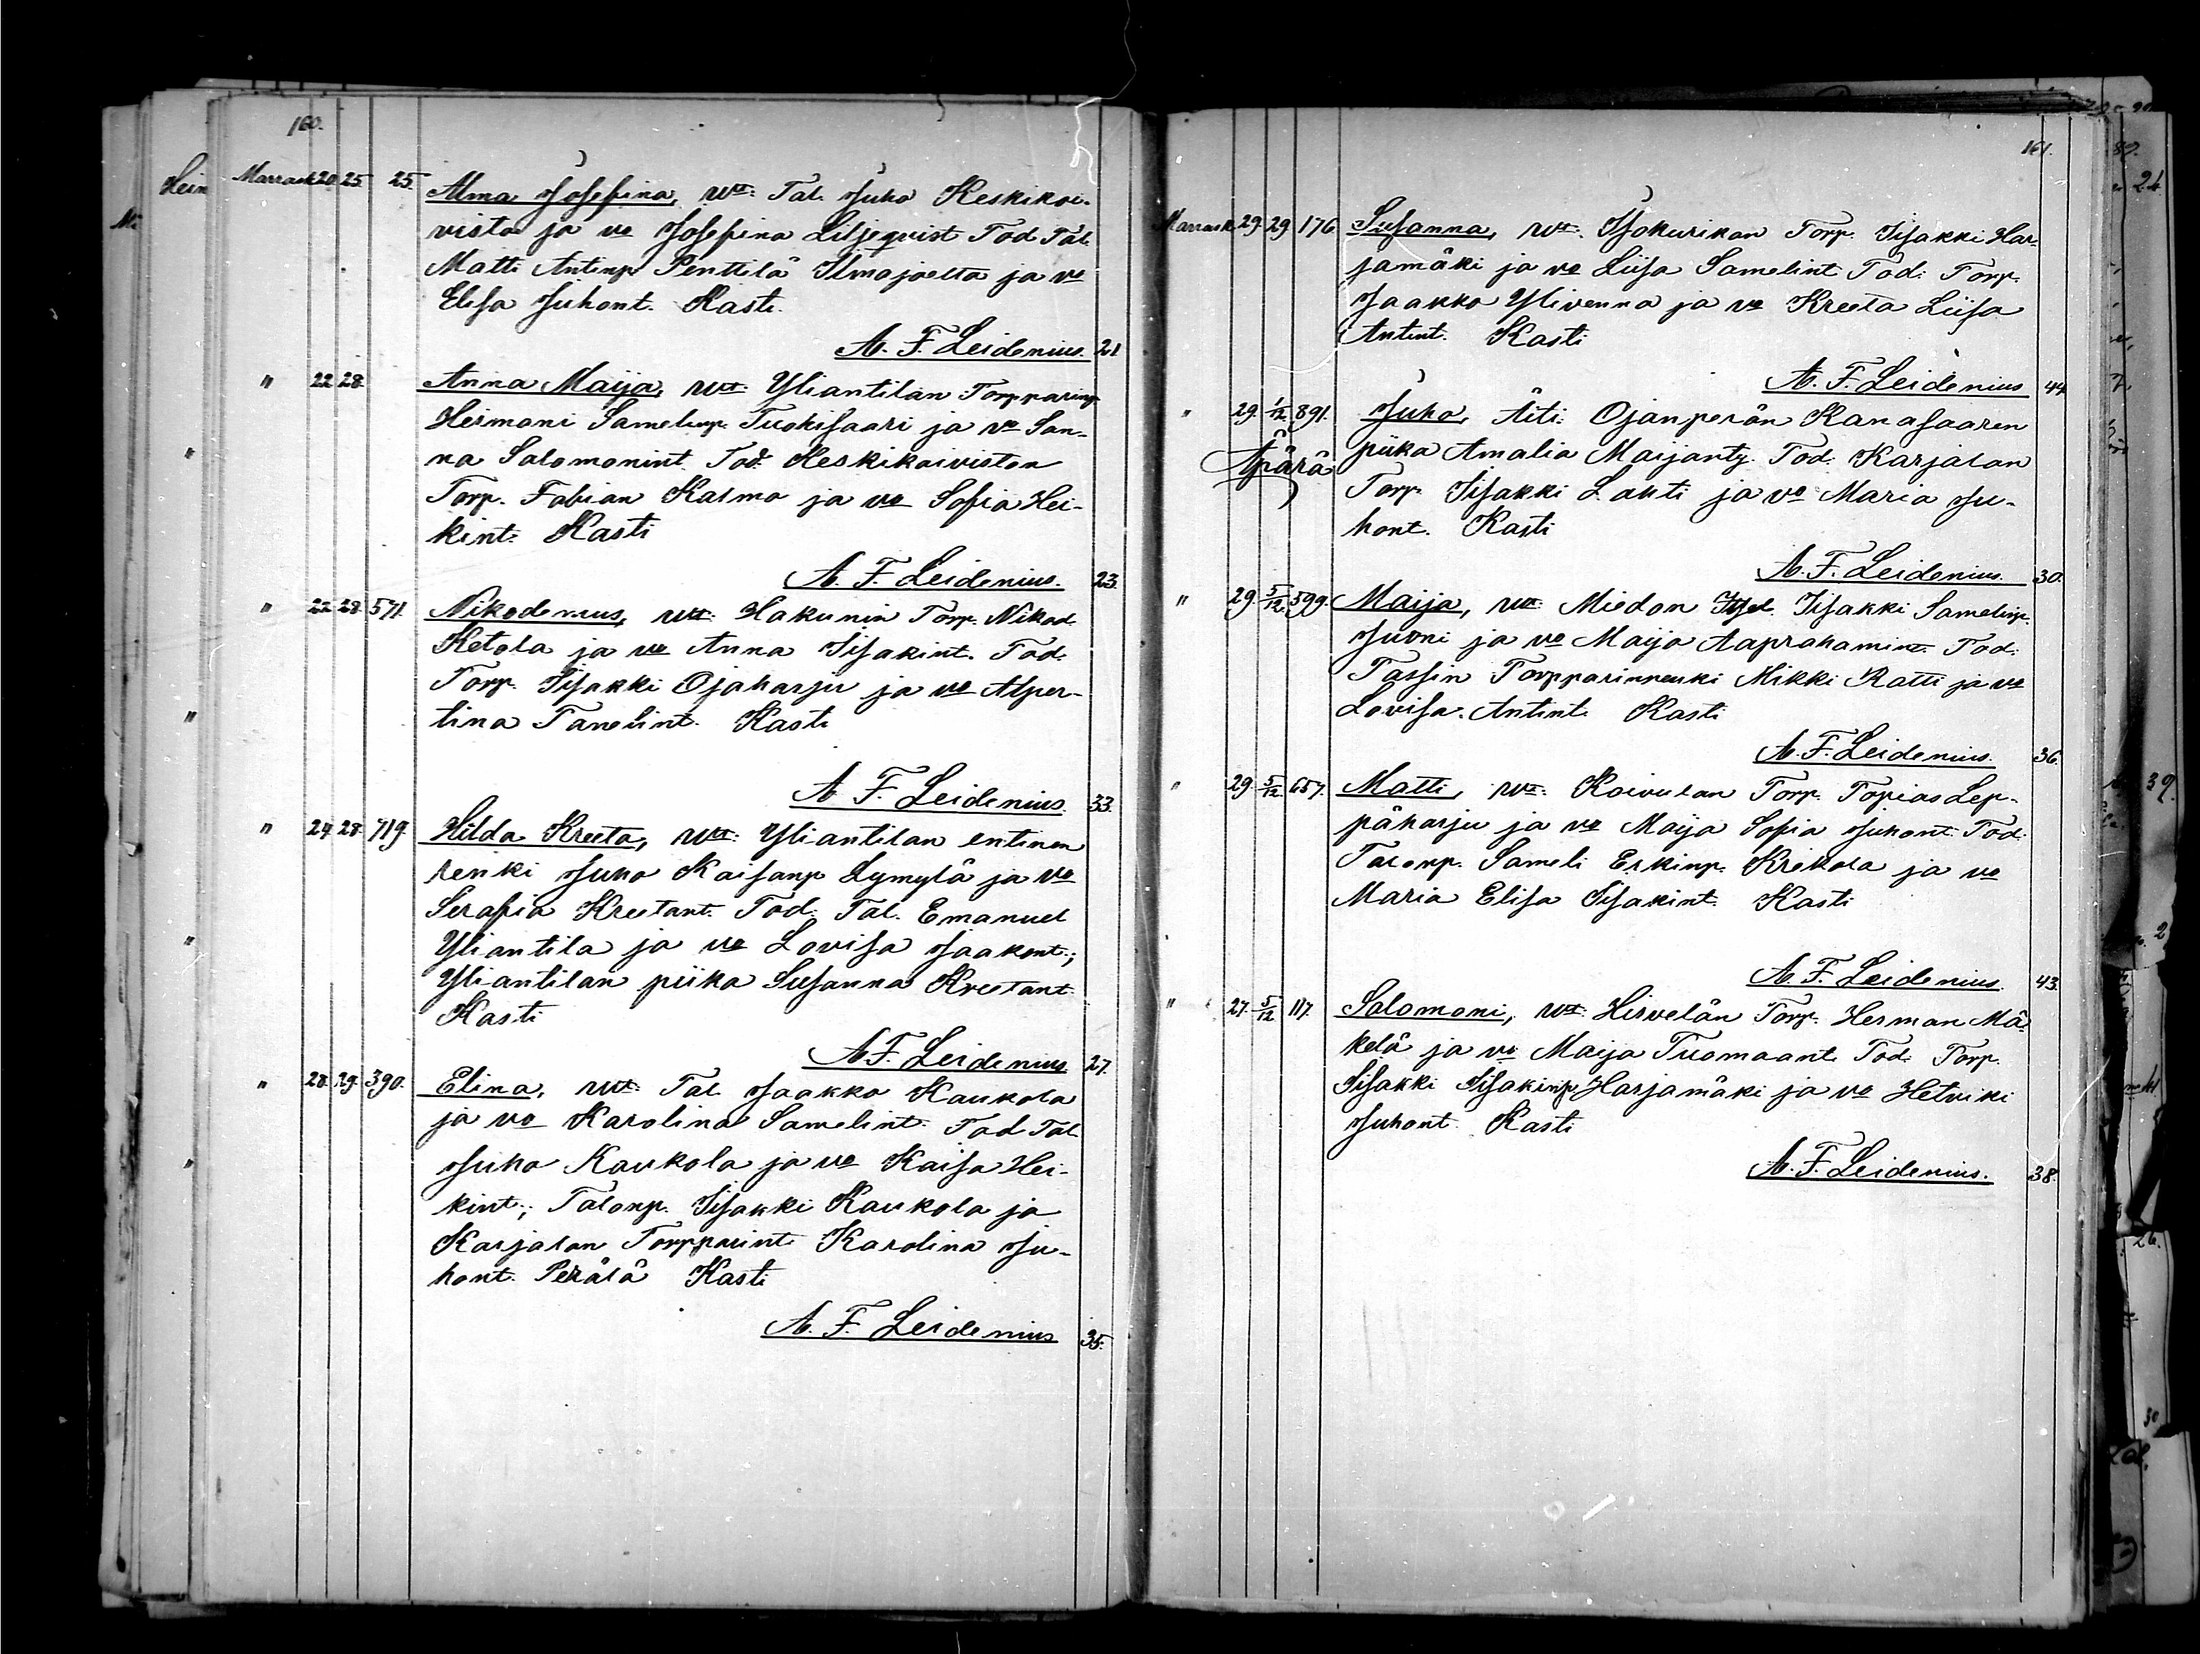 160.
Marrask. 20. 25. 25. Alma Josefina, wt: Tal. Juho Keskikoi-
visto ja vo Josefina Liljeqvist Tod. Tal.
Matti Antinp. Penttilä Ilmajoelta ja vo
Elisa Juhont. Kasti.
A. F. Leidenius. 21
" 22 28. Anna Maija, wt: Yliantilan Torpparinp.
Hermani Samelinp. Tuokisaari ja vo San-
na Salomonint. Tod: Keskikoiviston
Torp. Fabian Kalmo ja vo Sofia Hei-
kint. Kasti
A. F. Leidenius. 23.
" 22 28. 571. Nikodemus, wt: Hakunin Torp. Nikod.
Ketola ja vo Anna Iisakint. Tod:
Torp. Iisakki Ojaharju ja vo Alper-
tina Tanelint. Kasti
A. F. Leidenius. 33.
" 24. 28. 719. Hilda Kreeta, wt: Yliantilan entinen
renki Juho Kaisanp. Lymylä ja vo
Serafia Kreetant. Tod: Tal. Emanuel
Yliantila ja vo Lovisa Jaakont.;
Yliantilan piika Susanna Kreetant.
Kasti
A. F. Leidenius 27.
" 28. 29. 390. Elina, wt: Tal. Jaakko Kaukola
ja vo Karolina Samelint. Tod Tal.
Juho Kaukola ja vo Kaisa Hei-
kint.; Talonp. Iisakki Kaukola ja
Karjalan Torpparint. Karolina Ju-
hont. Perälä Kasti
A. F. Leidenius 35.
161.
Marrask. 29. 29. 176. Susanna, wt. Isokurikan Torp. Iisakki Har-
jamäki ja vo Liisa Samelint. Tod: Torp.
Jaakko Ylivenna ja vo Kreeta Liisa
Antint. Kasti
A. F. Leidenius 44
" 29. 1/12 891. Juho, Äiti: Ojanperän Kanasaaren
Äpärä
piika Amalia Maijanty. Tod: Karjalan
Torp. Iisakki Lahti ja vo Maria Ju-
hont. Kasti
A. F. Leidenius. 30.
" 29. 5/12. 599. Maija, wt: Miedon Itsel. Iisakki Samelinp.
Juoni ja vo Maija Aaprahamint. Tod:
Passin Torpparinrenki Mikki Ratti ja vo
Lovisa Antint. Kasti
A. F. Leidenius. 36.
" 29. 5/12. 657. Matti, wt: Koivulan Torp. Topias Lep-
päharju ja vo Maija Sofia Juhont. Tod:
Talonp. Sameli Erkinp. Krekola ja vo
Maria Elisa Iisakint. Kasti
A. F. Leidenius. 43.
" 27. 5/12 117. Salomoni, wt: Hirvelän Torp. Herman Mä-
kelä ja vo Maija Tuomaant. Tod: Torp.
Iisakki Iisakinp. Harjamäki ja vo Hetviki
Juhont. Kasti
A. F. Leidenius. 38.